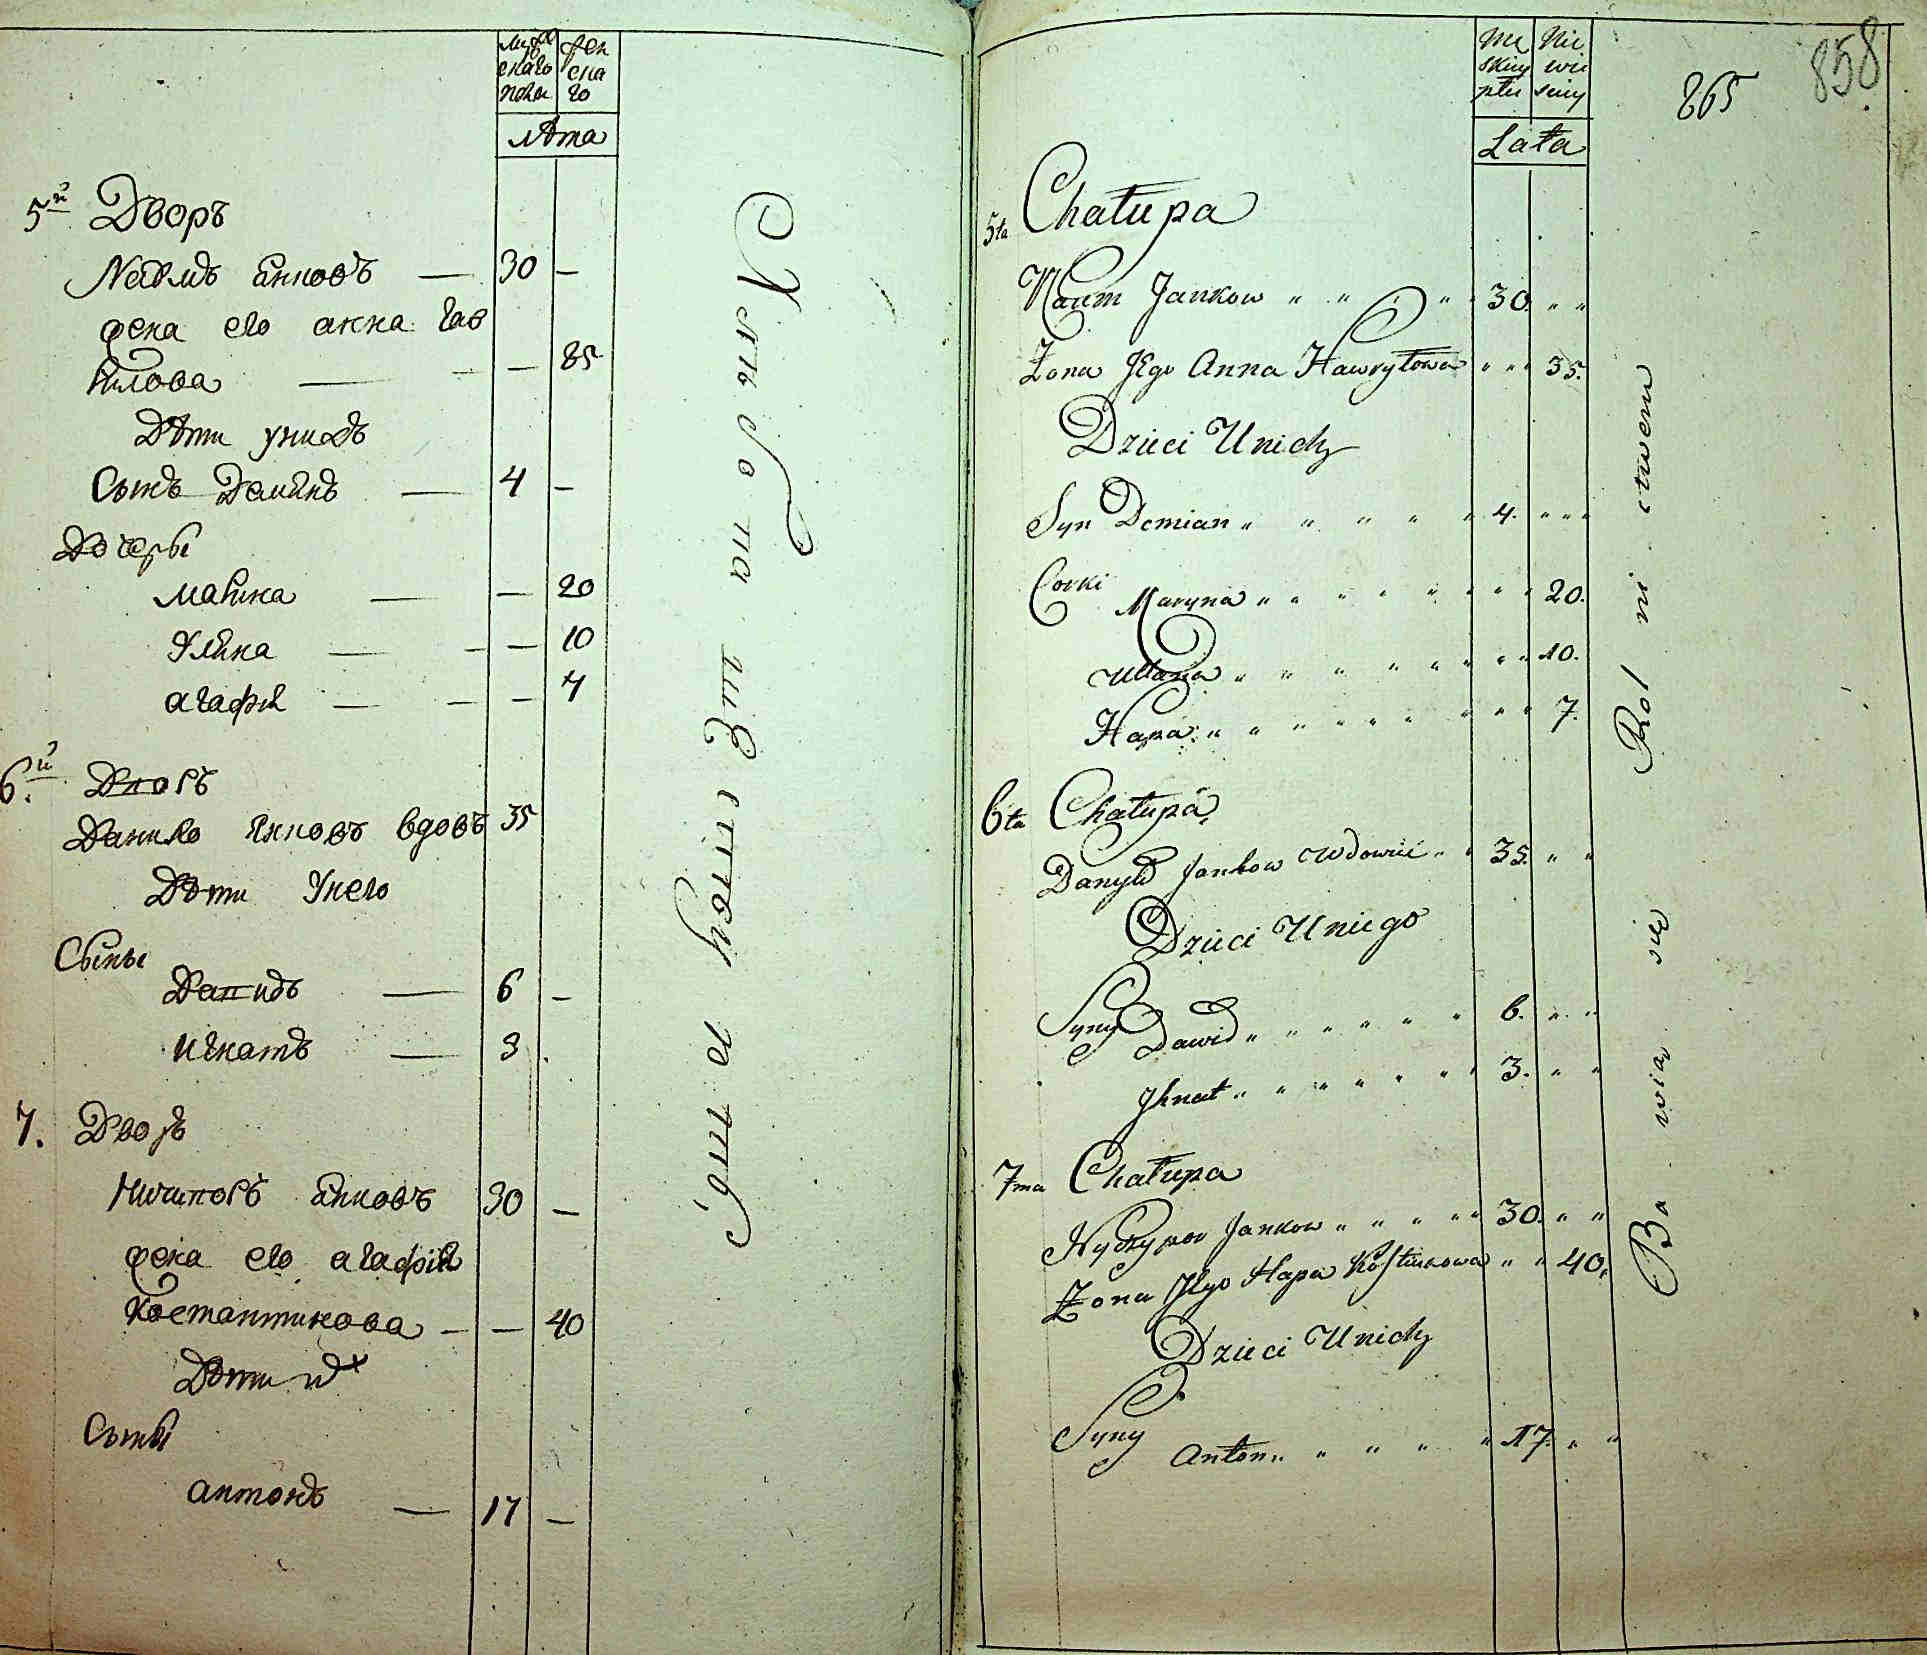 мужескаго пола
женскаго
лѣта
5й Дворъ
Наумъ Янковъ — 30 —
жена его анна Гав
рилова — — 35
Дѣти у нихъ
Сынъ Демянъ — 4 —
Дочеры
Марина — — 20
Уляна — — 10
агафия — — 7
6.й Дворъ
Данило Янковъ вдовъ 35
Дѣти У него
Сыны
Давидъ — 6 —
Игнатъ — 3
7. Дворъ
Ничипоръ Янковъ 30 —
жена его агафия
Костантинова — — 40
Дѣти их
Сыны
антонъ — 17 —
Хлѣбопашествую
Męskiey płci
Niewieściey
Lata
865
858
5ta Chałupa
Naum Jankow 30.
Żona Jego Anna Hawryłowa 35.
Dzieci U nich
Syn Demian 4.
Corki Maryna 20.
Ullana 10.
Hapa 7.
6ta Chałupa
Danyło Jankow Wdowiec 35.
Dzieci U niego
Syny Dawid 6.
Jhnat 3.
7ma Chałupa
Nyczypor Jankow 30.
Żona Jego Hapa Kostiukowa 40.
Dzieci U nich
Syny Anton 17.
Bawią się Rolnictwem